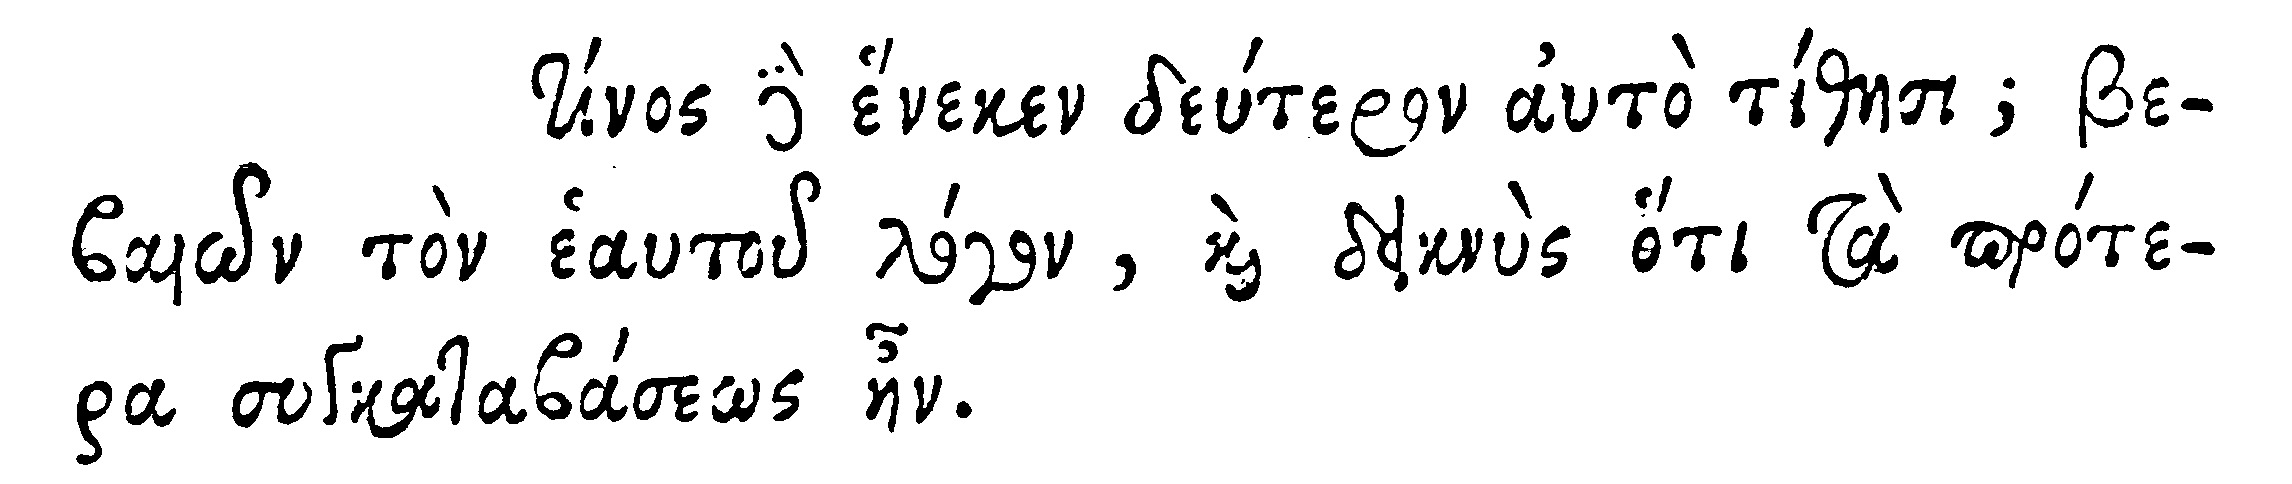 τίνος δὲ ἕνεκεν δεύτερον αὐτὸ τίθησι; βε-
βαιῶν τὸν ἑαυτοῦ λόγον, καὶ δεικνὺς ὅτι τὰ πρότε-
ρα συγκαταβάσεως ἦν.